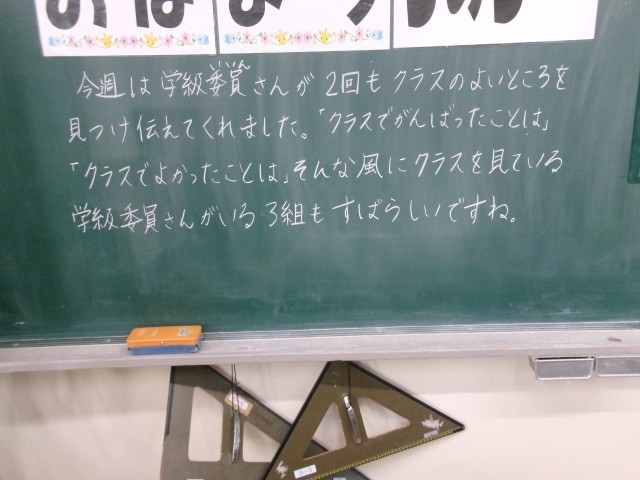 今週は学級委員さんが2回もクラスのよいところを
見つけ伝えてくれました。「クラスでがんばったことは」
「クラスでよかったことは」そんな風にクラスを見ている
学級委員さんがいる3組もすばらしいですね。